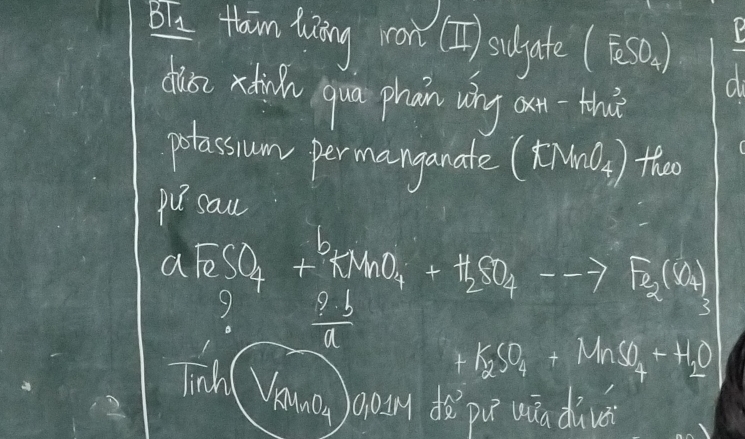 BT1 Hàm lượng iron (II) sulfate (FeSO4)
được xđịnh qua phản ứng oxh - khử
potassium permanganate (KMnO4) theo
pứ sau
aFeSO4 + bKMnO4 + H2SO4 ---> Fe2(SO4)3
? ?.b/a
+ K2SO4 + MnSO4 + H2O
Tính VKMnO4 0,01M để pứ vừa đủ với